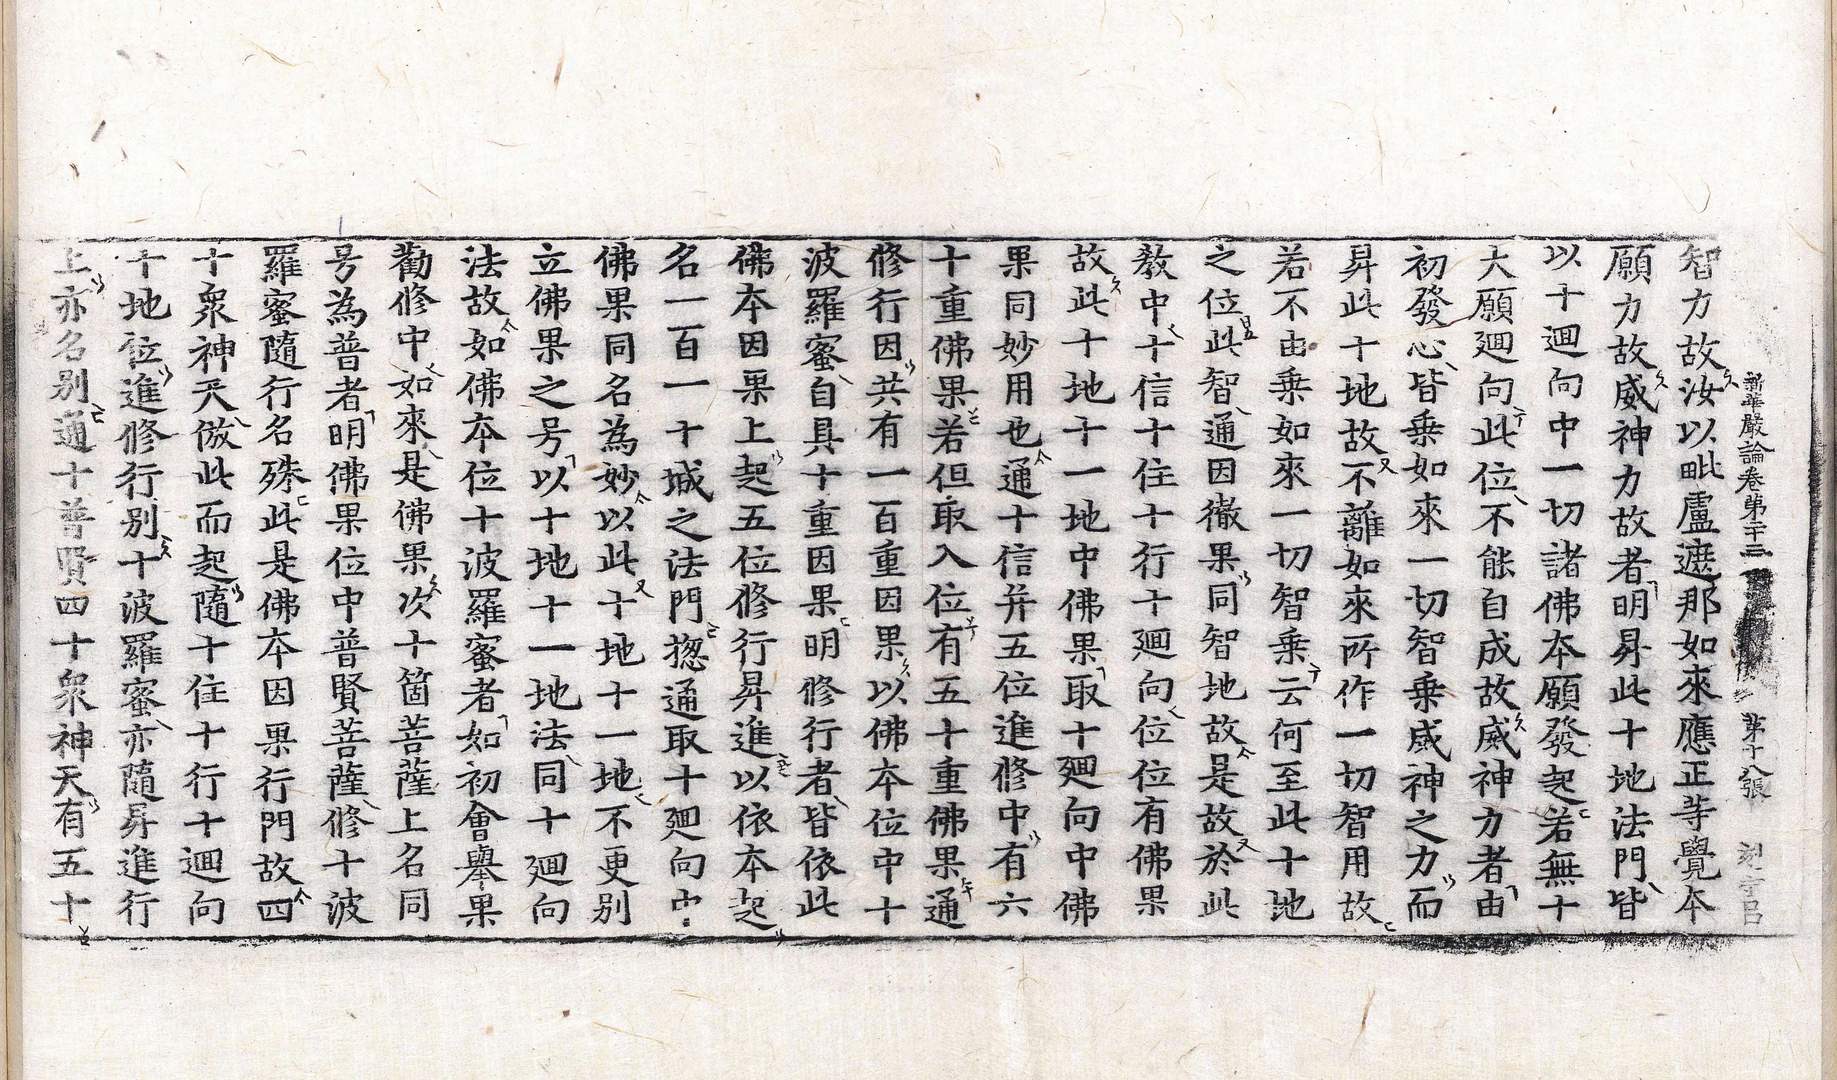 新華嚴論卷第二十三 第十八張
智力故汝以毗盧遮那如來應正等覺本
願力故威神力故者明昇此十地法門皆
以十迴向中一切諸佛本願發起若無十
大願迴向此位不能自成故威神力者由
初發心皆乗如來一切智乗威神之力而
昇此十地故不離如來所作一切智用故
若不由乗如來一切智乗云何至此十地
之位此智通因徹果同智地故是故於此
教中十信十住十行十迴向位位有佛果
故此十地十一地中佛果取十迴向中佛
果同妙用也通十信并五位進修中有六
十重佛果若但取入位有五十重佛果通
修行因共有一百重因果以佛本位中十
波羅蜜自具十重因果明修行者皆依此
佛本因果上起五位修行昇進以依本起
名一百一十城之法門揔通取十迴向中
佛果同名為妙以此十地十一地不更別
立佛果之号以十地十一地法同十迴向
法故如佛本位十波羅蜜者如初會舉果
勸修中如來是佛果次十箇菩薩上名同
号為普者明佛果位中普賢菩薩修十波
羅蜜隨行名殊此是佛本因果行門故四
十衆神天倣此而起隨十住十行十迴向
十地位進修行別十波羅蜜亦隨昇進行
上亦名別通十普賢四十衆神天有五十